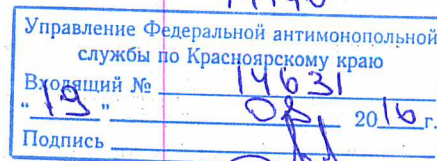 Управление Федеральной антимонопольной
службы по Красноярскому краю
Входящий № 14631
"19" 08 2016г.
Подпись